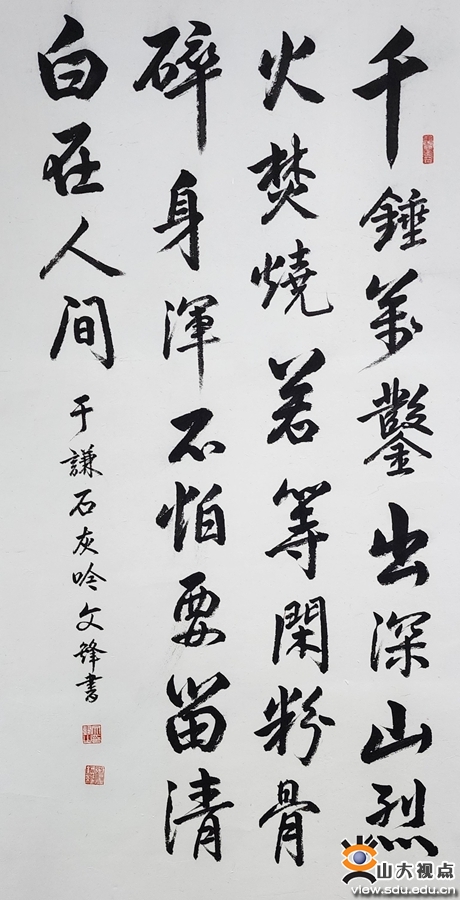 千錘萬鑿出深山烈
火焚燒若等閑粉骨
碎身渾不怕要留清
白在人间
于謙石灰吟文鋒書
山大视点
view.sdu.edu.cn